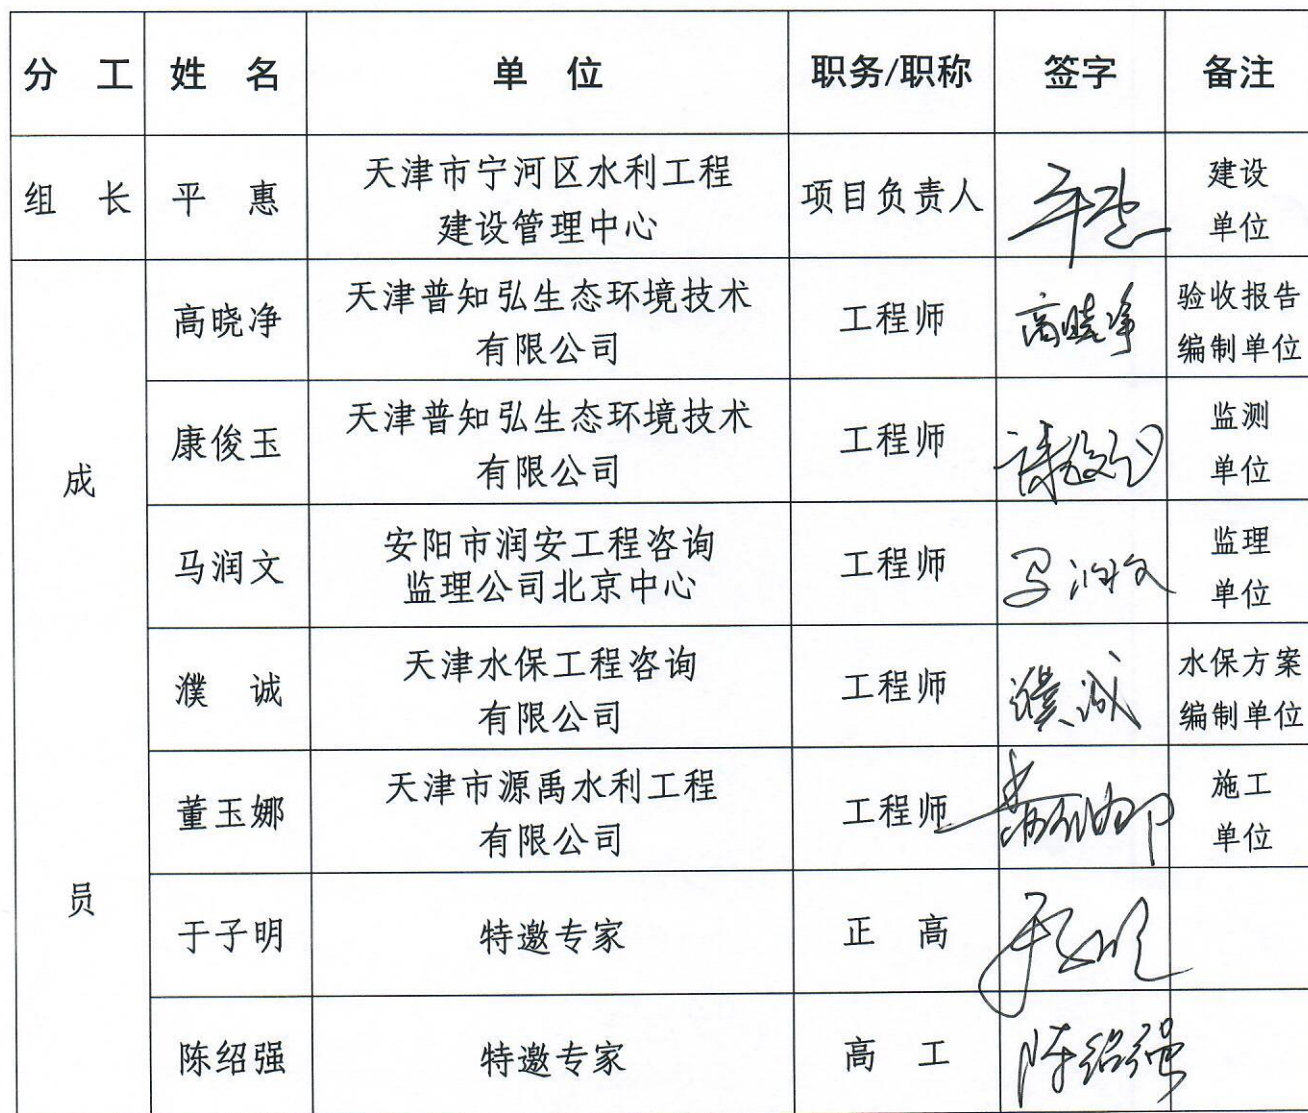 分 工 姓 名 单 位 职务/职称 签字 备注
组 长 平 惠 天津市宁河区水利工程
建设管理中心 项目负责人 平惠 建设
单位
成
员
高晓净 天津普知弘生态环境技术
有限公司 工程师 高晓净 验收报告
编制单位
康俊玉 天津普知弘生态环境技术
有限公司 工程师 监测
单位
马润文 安阳市润安工程咨询
监理公司北京中心 工程师 马润文 监理
单位
濮 诚 天津水保工程咨询
有限公司 工程师 濮诚 水保方案
编制单位
董玉娜 天津市源禹水利工程
有限公司 工程师 董玉娜 施工
单位
于子明 特邀专家 正 高 于子明
陈绍强 特邀专家 高 工 陈绍强